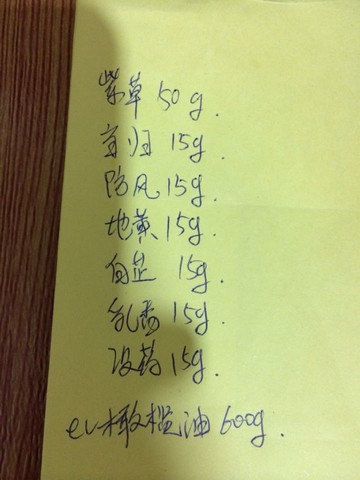 紫草 50g.
当归 15g.
防风 15g.
地黄 15g.
白芷 15g.
乳香 15g.
没药 15g.
ev橄榄油 600g.